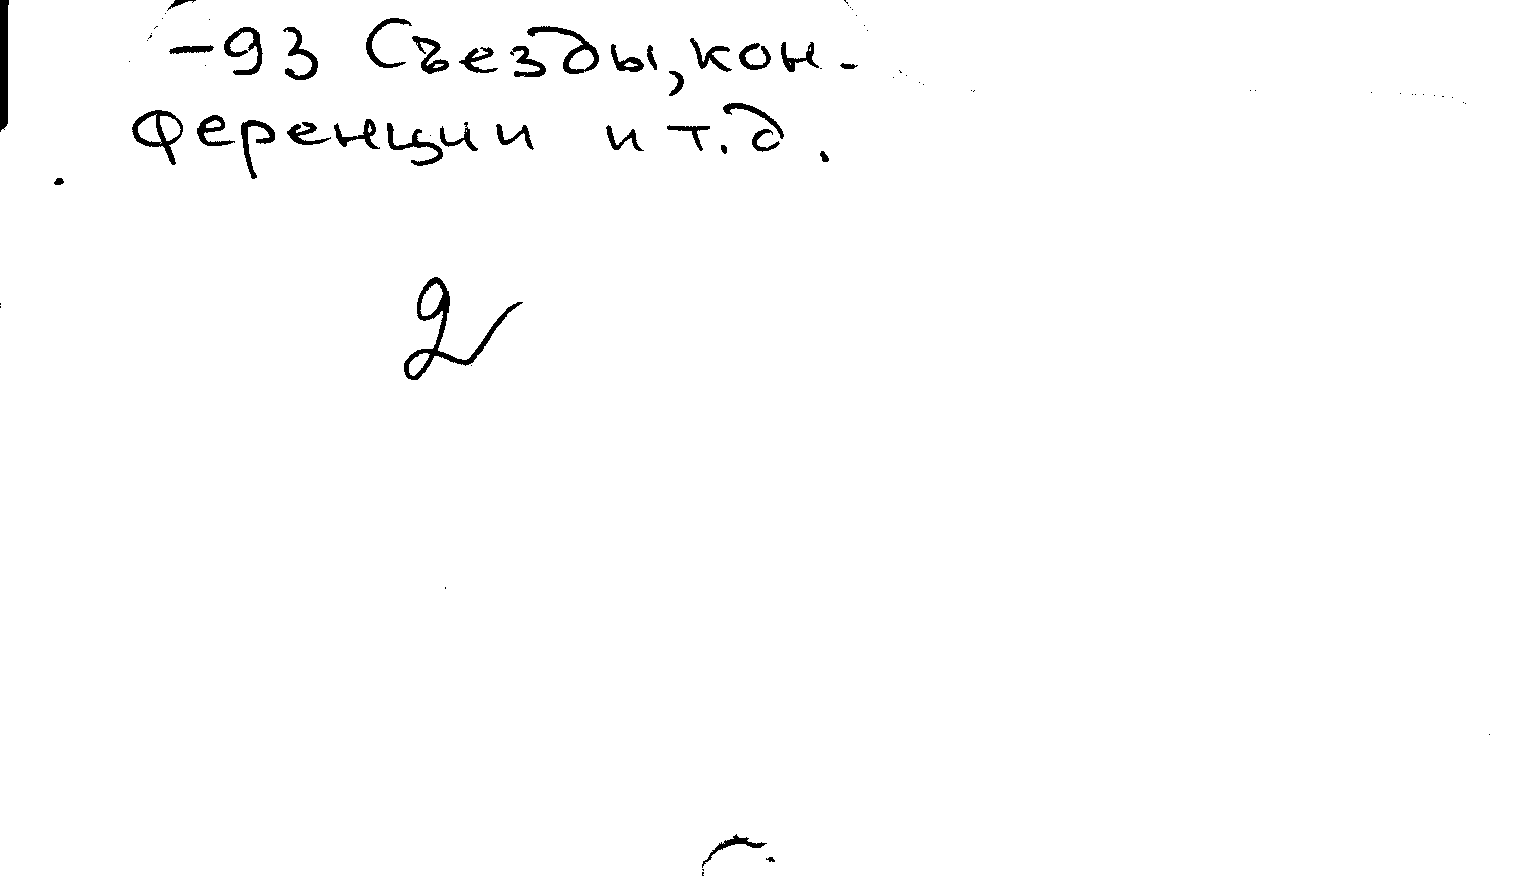 -93 Съезды, кон-
ференции и т.д.
2